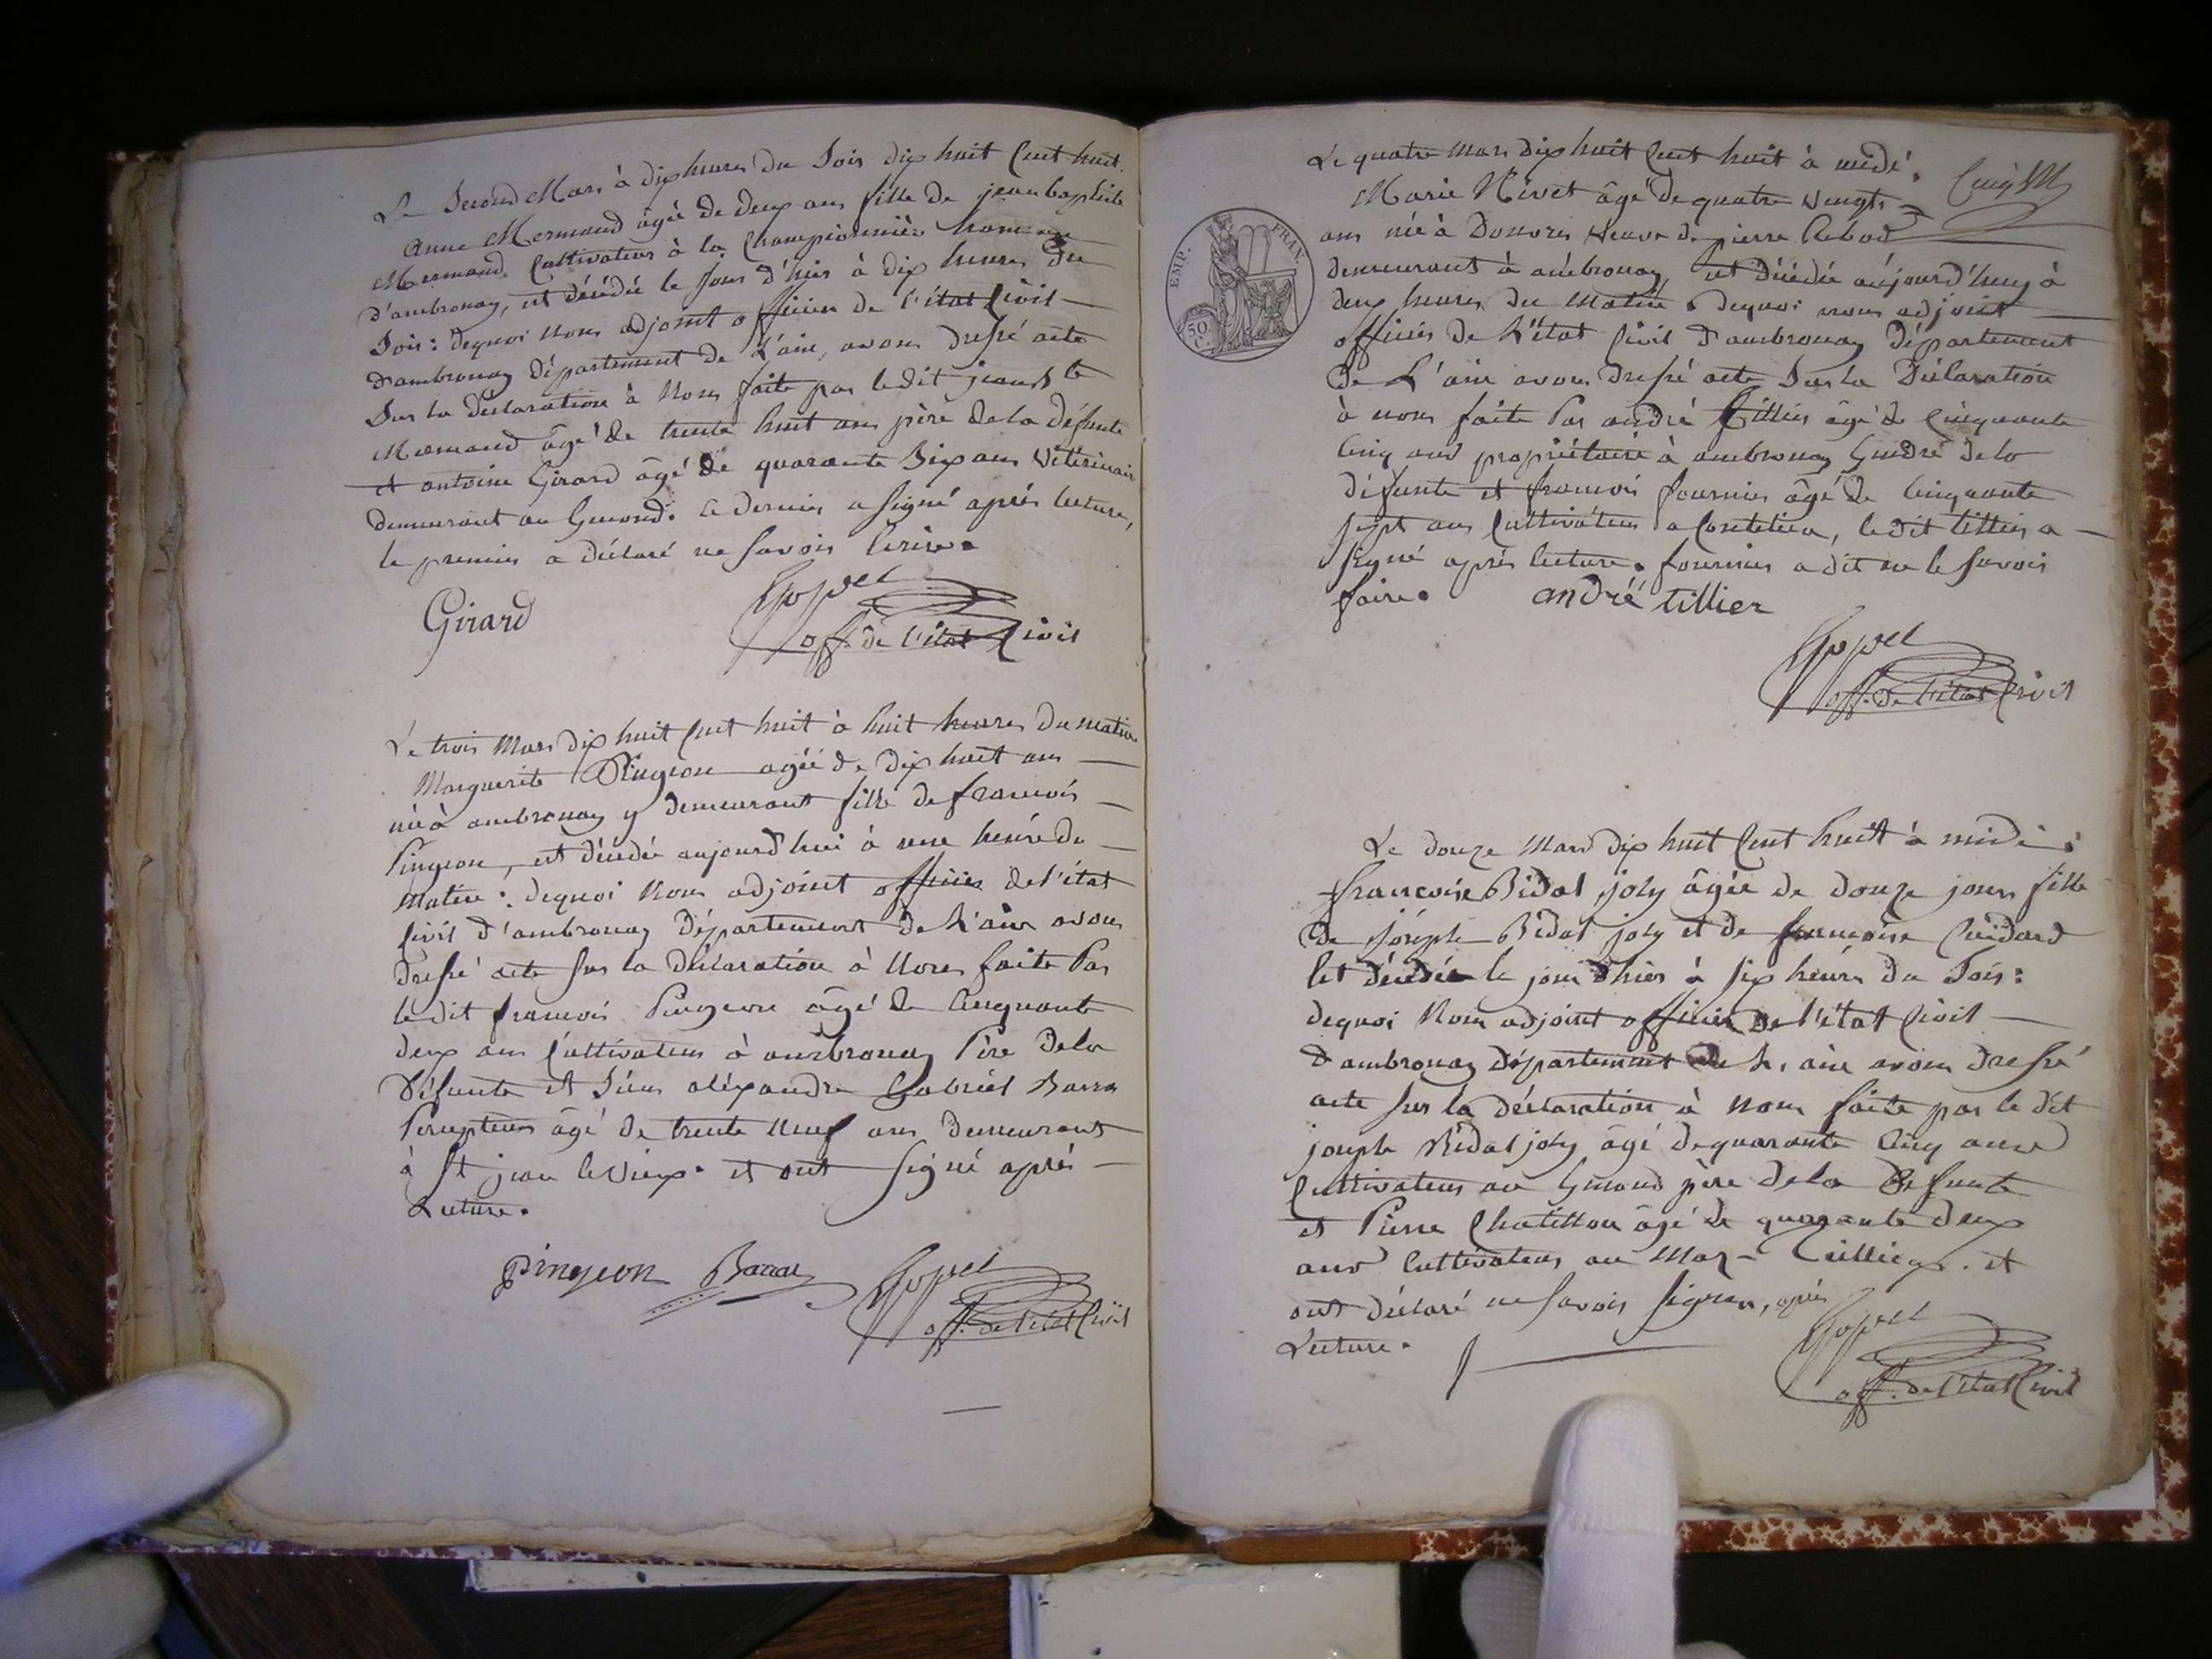 Le Second Mars à dix heures du Soir dix huit Cent huit.
Anne Mermand âgée de deux ans fille de jean baptiste
Mermand Cultivateur à la Championnière hameau
d'ambronay, est décédée le jour d'hier à dix heures du
Soir : dequoi nous adjoint officier de l'état Civil
d'ambronay département de L'ain, avons dressé acte
Sur la déclaration à Nous faite par ledit jean Bte
Mermand âgé de trente huit ans père dela défunte
et antoine Girard âgé de quarante Six ans Vétérinair
demeurant au Genoud. le dernier a signé après lecture,
le premier a déclaré ne savoir Ecrire.
Girard
off. de l'état Civil
Le trois Mars dix huit Cent huit à huit heures du matin
Marguerite Pingeon agée de dix huit ans
née à ambronay y demeurant fille de francois
Pingeon, est décédée aujourd'hui à une heure du
Matin : dequoi Nous adjoint officier de l'état
Civil d'ambronay département de L'ain avons
dressé acte sur la déclaration à Nous faite Par
le dit francois Pingeon âgé de Cinquante
deux ans Cultivateur à ambronay Père dela
défunte et Sieur aléxandre Gabriel Barra
Percepteur âgé de trente neuf ans demeurant
à St jean le Vieux. et ont signé après
Lecture.
Pingeon Barra
off. de l'état Civil
Le quatre Mars dix huit Cent huit à midi.
Marie Nivet âgé de quatre vingts
ans née à Veuve de pierre Rebod
demeurant à ambronay, est décédée aujourd'huy à
deux heures du matin. dequoi nous adjoint
officier de L'état Civil d'ambronay Département
de L'ain avons dressé acte Sur la Déclaration
à nous faite Par andré tillier âgé de Cinquante
Cinq ans propriétaire à ambronay Gendre dela
défunte et francois fournier âgé de Cinquante
sept ans Cultivateur a, ledit tillier a
signé après lecture. fournier a dit ne le savoir
faire. andré tillier
off. de l'état Civil
EMP. FRAN.
50 C.
Le douze Mars dix huit Cent huit à midi.
francoise Bidal joly âgée de douze jours fille
de joseph Bidal joly et de francoise Cuidard
Est décédée le jour d'hier à six heures du Soir :
dequoi Nous adjoint officier de l'état Civil
d'ambronay département de L'ain avons dressé
acte sur la déclaration à Nous faite par le dit
joseph Bidal joly âgé de quarante Cinq ans
Cultivateur au Genoud père dela Défunte
et Pierre Chatillon âgé de quarante deux
ans Cultivateur au Maz. et
ont déclaré ne savoir signer, après
Lecture.
off. de l'état Civil